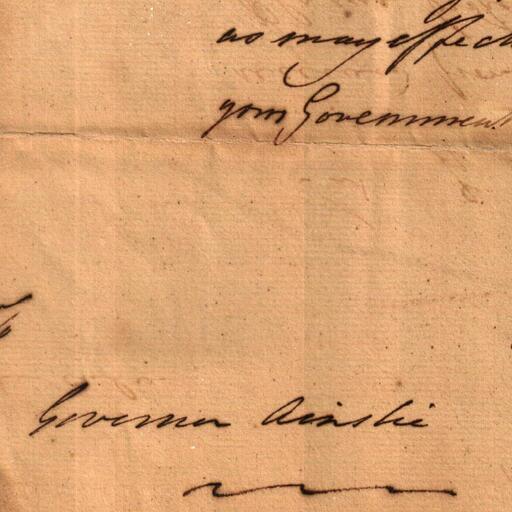 as may effect
your Government
Governor Ainslie